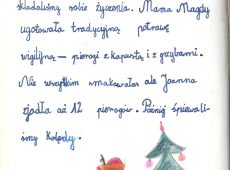 składaliśmy sobie życzenia. Mama Magdy
ugotowała tradycyjną potrawę
wigilijną — pierogi z kapustą i z grzybami.
Nie wszystkim smakowały ale Joanna
zjadła aż 12 pierogów. Później śpiewali-
śmy Kolędy.